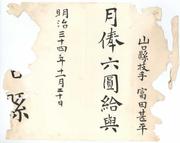 山口縣技手 富田甚平
月俸六圓給與
明治三十四年十二月二十日